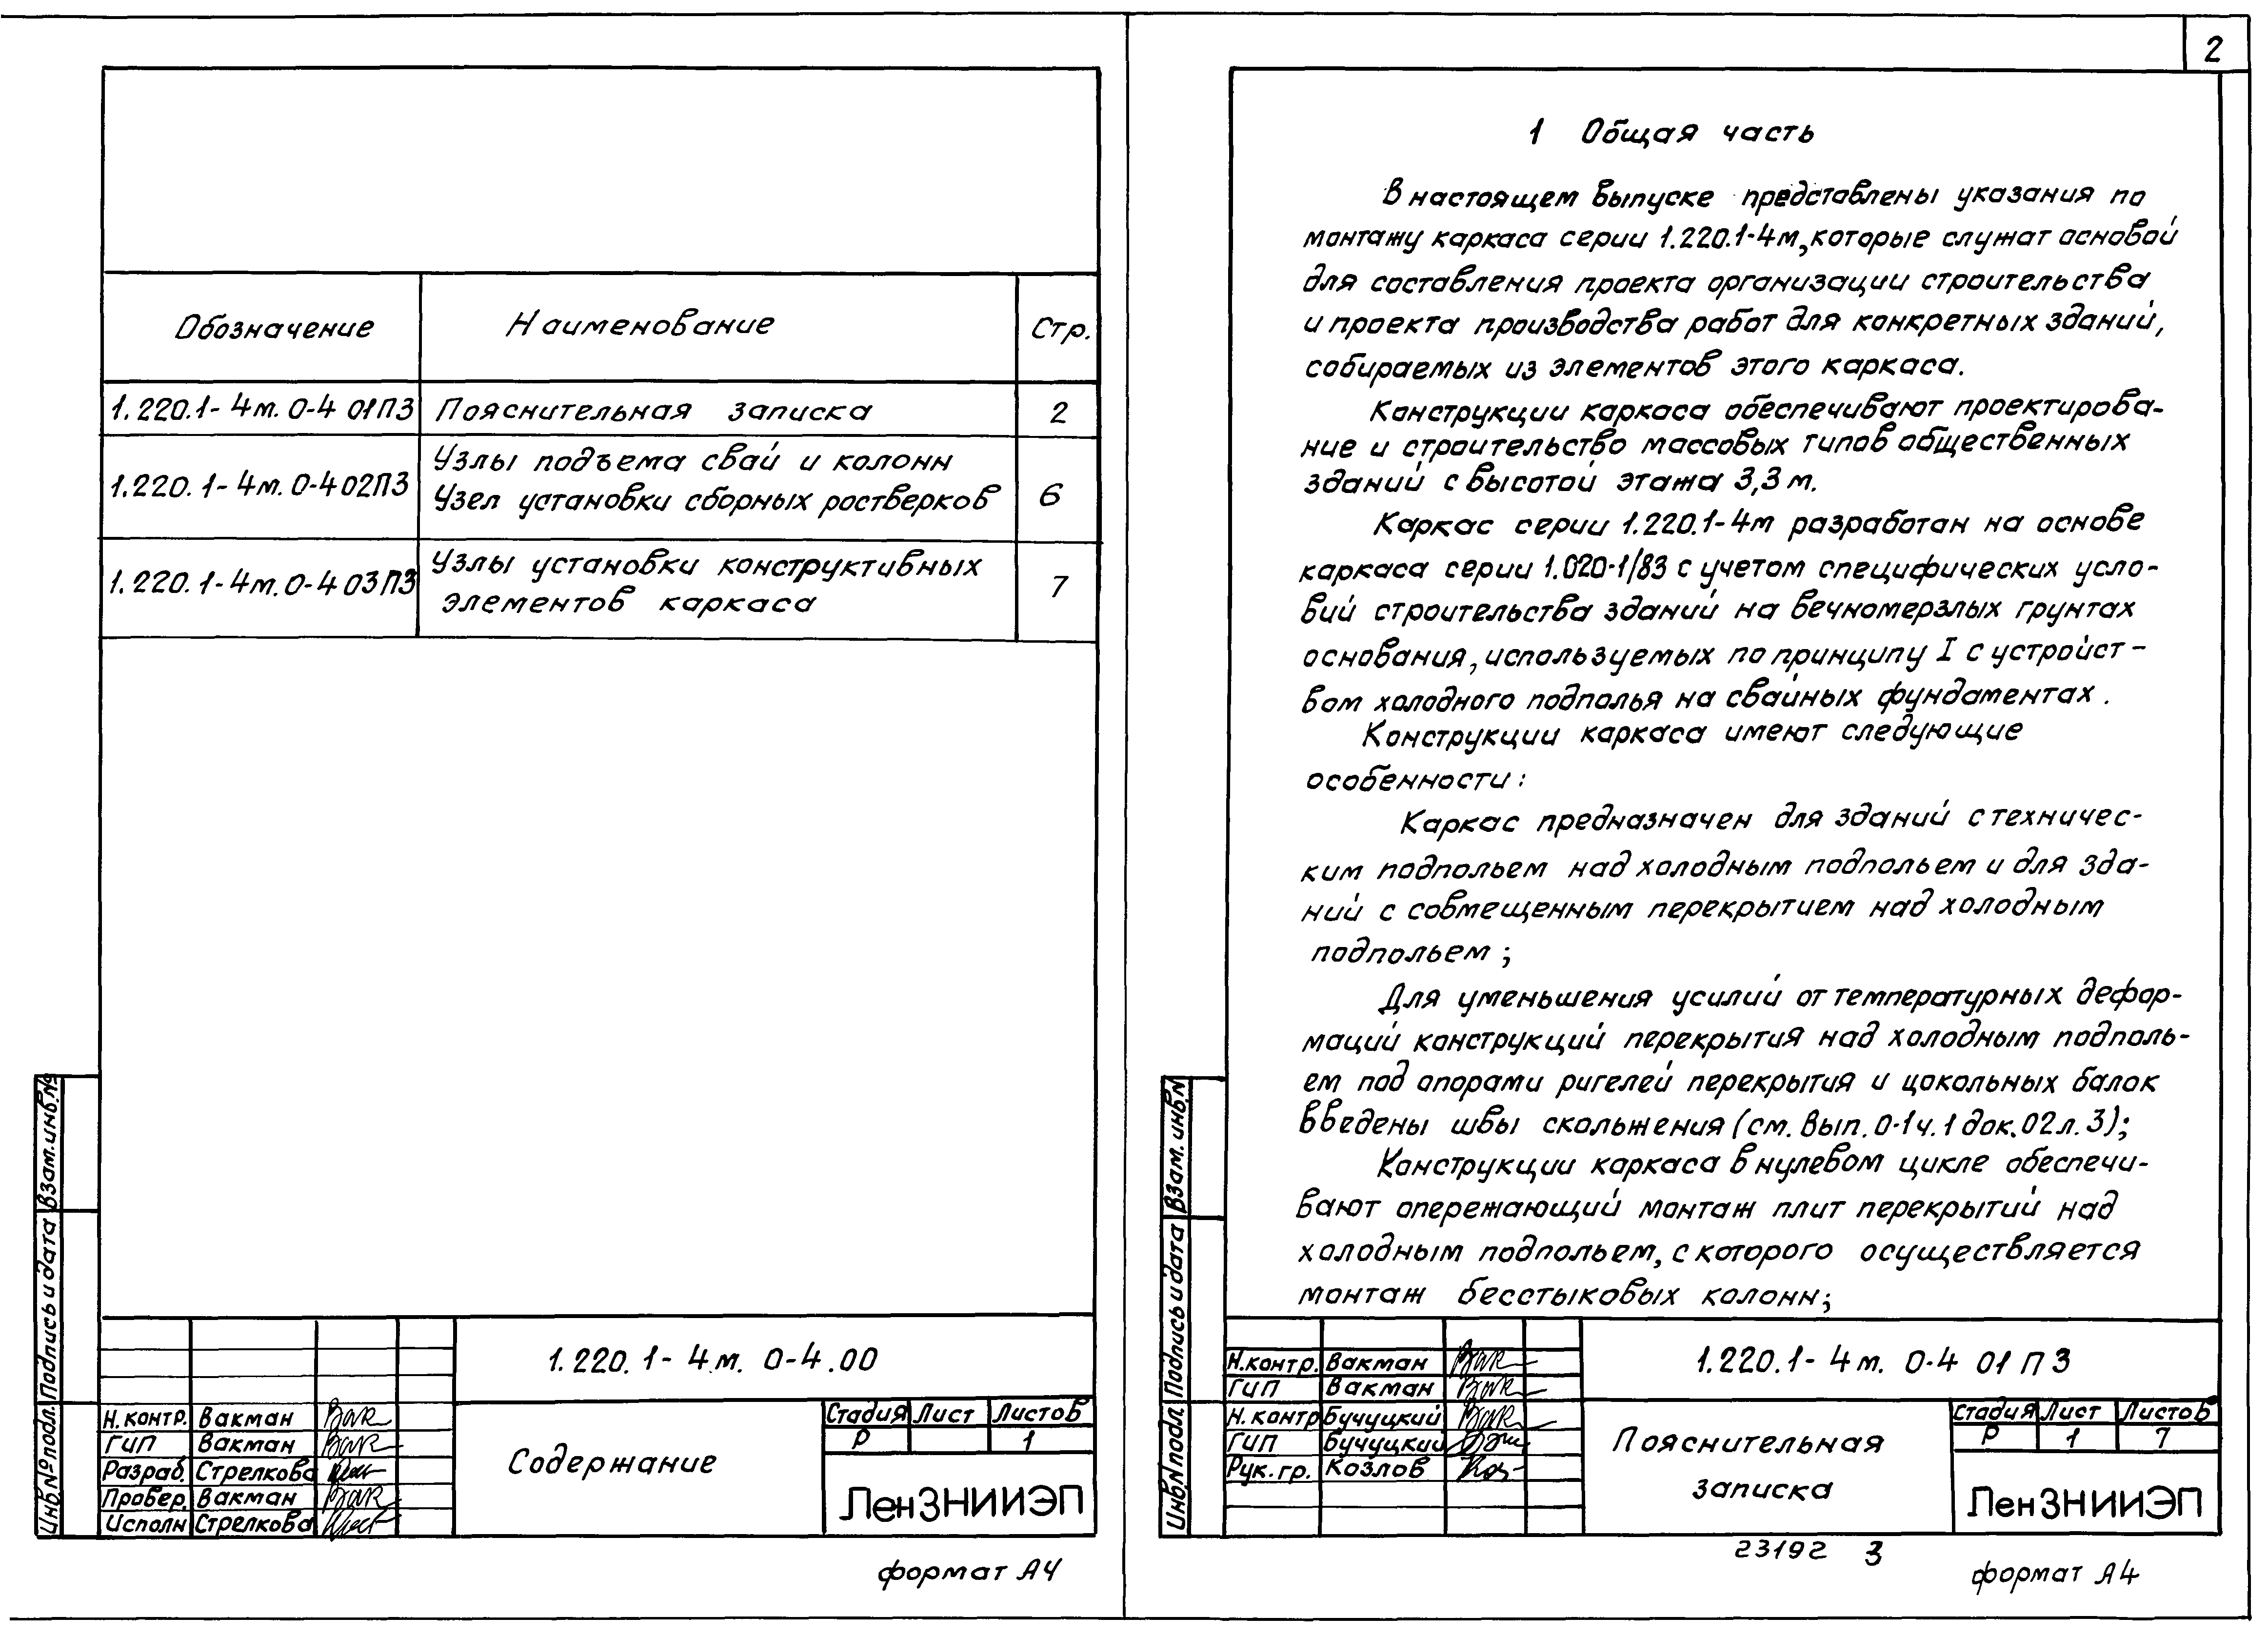 Обозначение
Наименование
Стр.
1.220.1-4м. 0-4 01ПЗ
Пояснительная записка
2
1.220.1-4м. 0-4 02ПЗ
Узлы подъема свай и колонн
Узел установки сборных ростверков
6
1.220.1-4м. 0-4 03ПЗ
Узлы установки конструктивных
элементов каркаса
7
Взам.инв.№
Подпись и дата
Инв.№ подл.
1.220.1-4м. 0-4.00
Н.контр. Вакман
ГИП Вакман
Разраб. Стрелкова
Провер. Вакман
Исполн Стрелкова
Содержание
Стадия Лист Листов
Р 1
ЛенЗНИИЭП
формат А4
2
1 Общая часть
В настоящем выпуске представлены указания по
монтажу каркаса серии 1.220.1-4м, которые служат основой
для составления проекта организации строительства
и проекта производства работ для конкретных зданий,
собираемых из элементов этого каркаса.
Конструкции каркаса обеспечивают проектирова-
ние и строительство массовых типов общественных
зданий с высотой этажа 3,3 м.
Каркас серии 1.220.1-4м разработан на основе
каркаса серии 1.020-1/83 с учетом специфических усло-
вий строительства зданий на вечномерзлых грунтах
основания, используемых по принципу I с устройст-
вом холодного подполья на свайных фундаментах.
Конструкции каркаса имеют следующие
особенности:
Каркас предназначен для зданий с техничес-
ким подпольем над холодным подпольем и для зда-
ний с совмещенным перекрытием над холодным
подпольем;
Для уменьшения усилий от температурных дефор-
маций конструкций перекрытия над холодным подполь-
ем под опорами ригелей перекрытия и цокольных балок
введены швы скольжения (см. вып. 0-1 ч.1 док. 02 л. 3);
Конструкции каркаса в нулевом цикле обеспечи-
вают опережающий монтаж плит перекрытий над
холодным подпольем, с которого осуществляется
монтаж бесстыковых колонн;
Взам. инв.N
Подпись и дата
Инв.N подл.
Н.контр. Вакман
ГИП Вакман
Н.контр Бучуцкий
ГИП Бучуцкий
Рук.гр. Козлов
1.220.1-4м. 0-4 01 ПЗ
Пояснительная
записка
Стадия Лист Листов
Р 1 7
ЛенЗНИИЭП
23192 3
формат А4